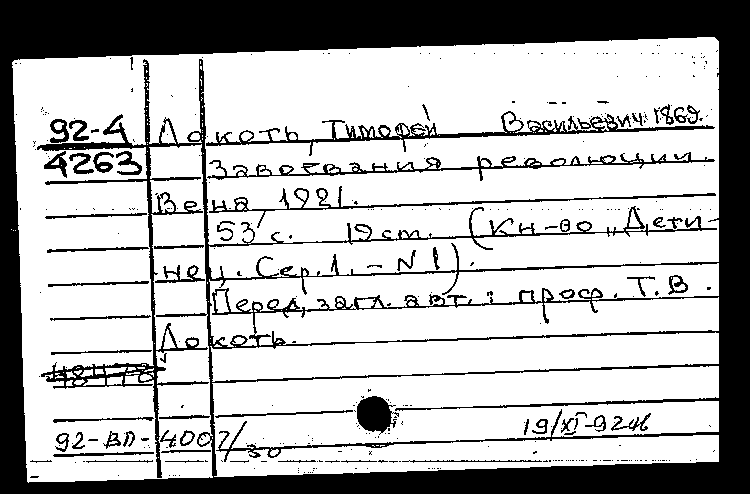 92-4 Локоть, Тимофей Васильевич 1869.
4263 Завоевания революции.
Вена 1921.
53 с. 19 cm. (Кн-во „Дети-
нец. Сер. 1. - N 1).
Перед загл. авт.: проф. Т. В.
Локоть.
92-ВП-4007/30 19/XI-92